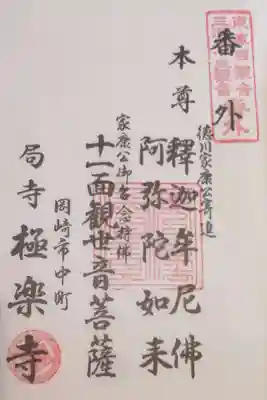 番外
本尊
徳川家康公寄進
釋迦牟尼佛
阿弥陀如来
家康公御念持佛
十一面観世音菩薩
岡崎市中町
局寺 極楽寺